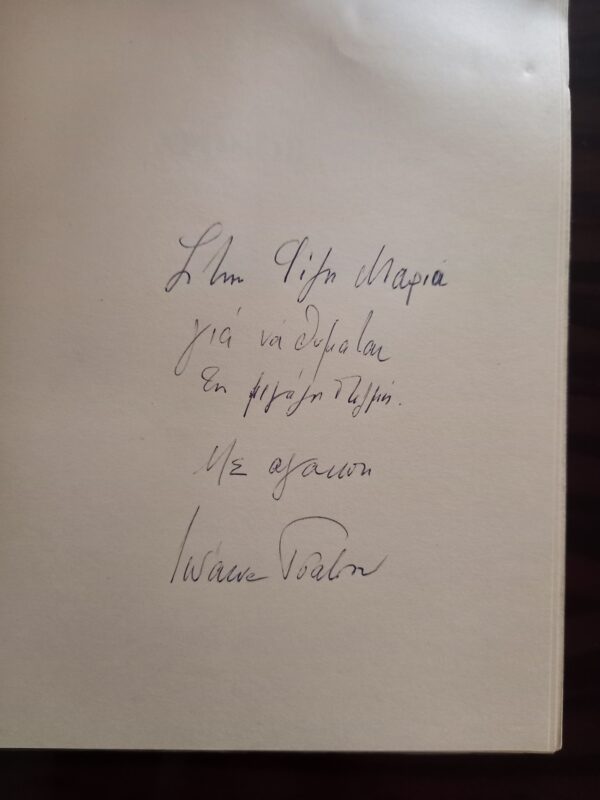 Στην φίλη Μαρία
γιά νά θυμαται
τη μεγάλη στιγμή.
Με αγαπη
Ιωάννα Τσατσου